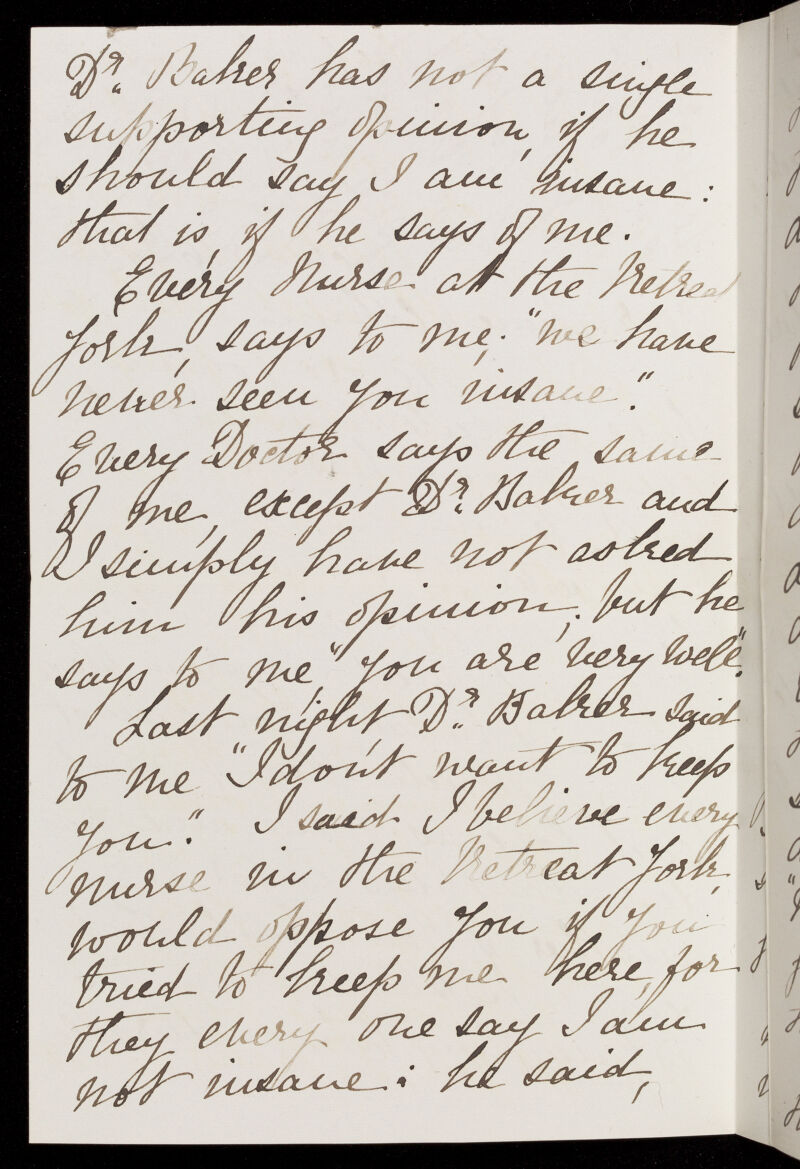 Dr. Baker has not a single
supporting opinion, if he
should say I am insane:
that is, if he says of me.
Every Nurse at the Retreat
York, says to me; "we have
never seen you insane."
Every Doctor says the same
of me, except Dr. Baker and
I simply have not asked
him his opinion; but he
says to me, "you are very well".
Last night Dr. Baker said
to me "I don't want to keep
you." I said I believe every
nurse in the Retreat York,
would oppose you if you
tried to keep me here, for
they every one say I am
not insane: he said,